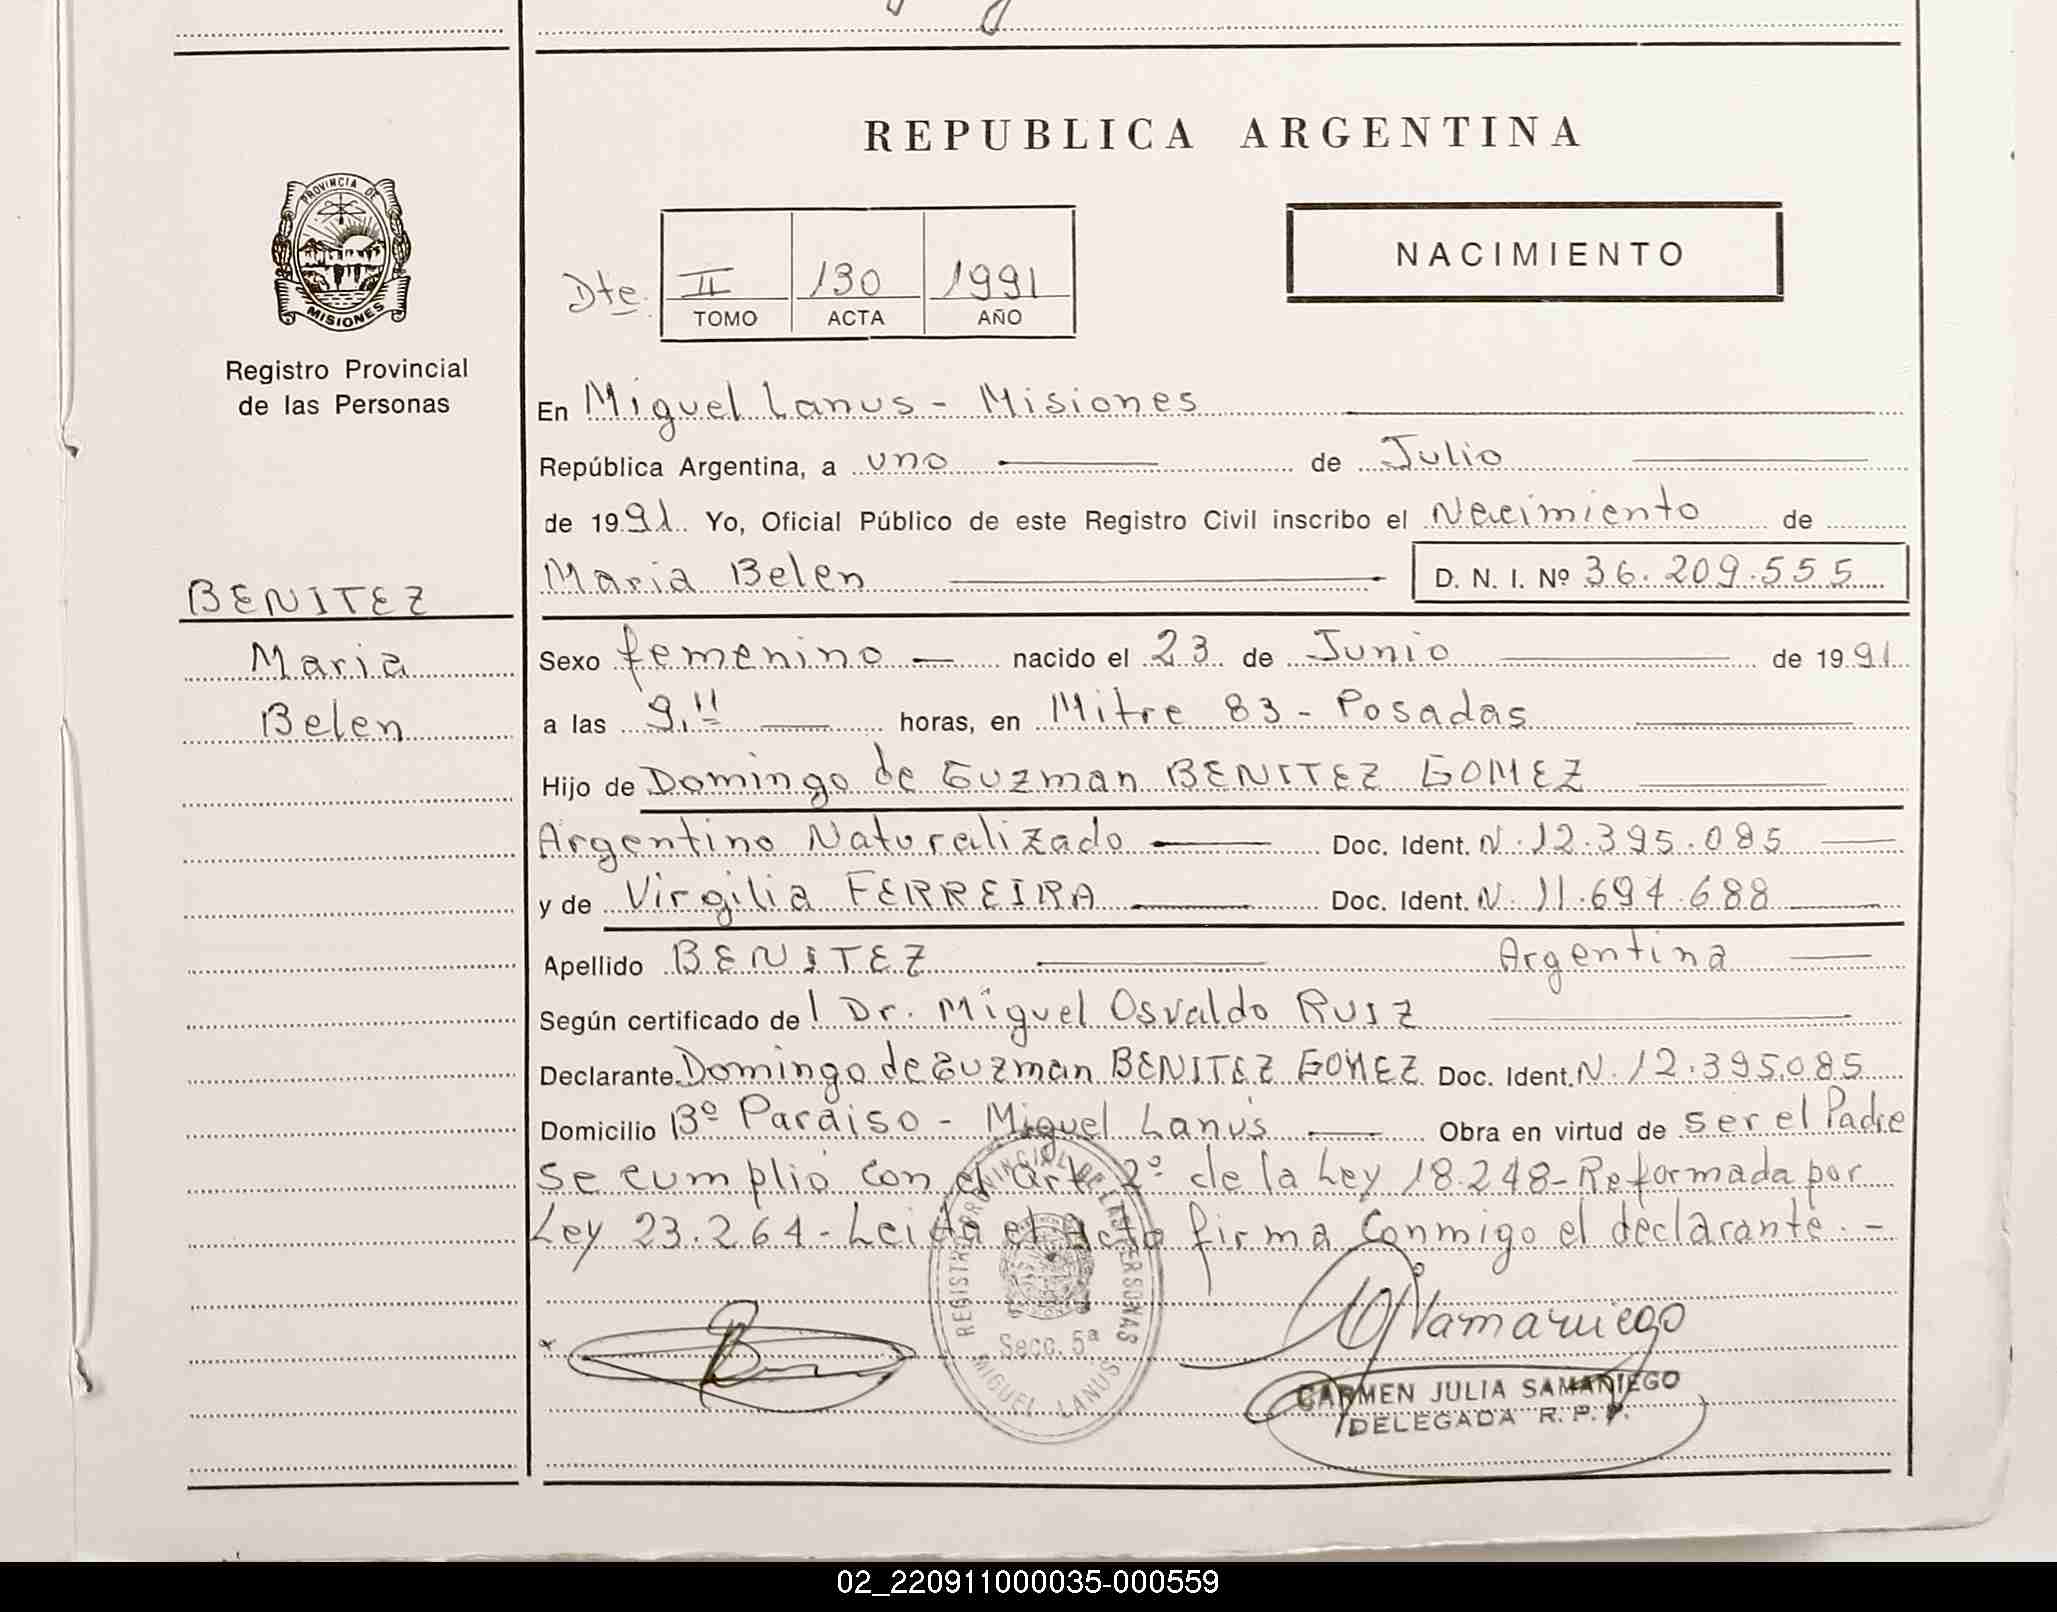 REPUBLICA ARGENTINA
PROVINCIA DE
MISIONES
Registro Provincial
de las Personas
NACIMIENTO
Dte. II 130 1991
TOMO ACTA AÑO
En Miguel Lanus - Misiones
República Argentina, a uno de Julio
de 1991 Yo, Oficial Público de este Registro Civil inscribo el Nacimiento de
Maria Belen D. N. I. Nº 36.209.555
BENITEZ
Maria
Belen
Sexo femenino nacido el 23 de Junio de 1991
a las 9,11 horas, en Mitre 83 - Posadas
Hijo de Domingo de Guzman BENITEZ GOMEZ
Argentino Naturalizado Doc. Ident. N. 12.395.085
y de Virgilia FERREIRA Doc. Ident. N. 11.694.688
Apellido BENITEZ Argentina
Según certificado del Dr. Miguel Osvaldo RUIZ
Declarante Domingo de Guzman BENITEZ GOMEZ Doc. Ident. N. 12.395.085
Domicilio Bº Paraiso - Miguel Lanús Obra en virtud de ser el Padre
se cumplió con el art. 2º de la Ley 18.248 - Reformada por
Ley 23.264 - Leida el acta firma conmigo el declarante. -
REGISTRO PROVINCIAL DE LAS PERSONAS
Secc. 5ª
MIGUEL LANUS
Samaniego
CARMEN JULIA SAMANIEGO
DELEGADA R. P. P.
02_220911000035-000559